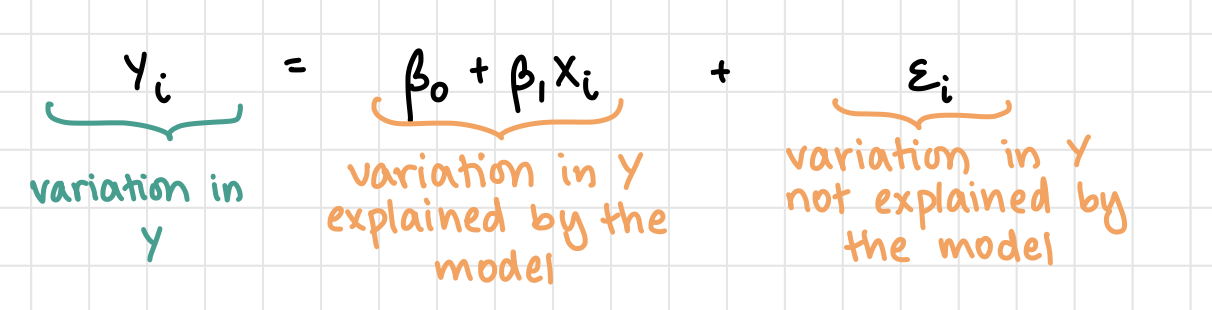 Yᵢ = β₀ + β₁Xᵢ + εᵢ
variation in
Y
variation in Y
explained by the
model
variation in Y
not explained by
the model